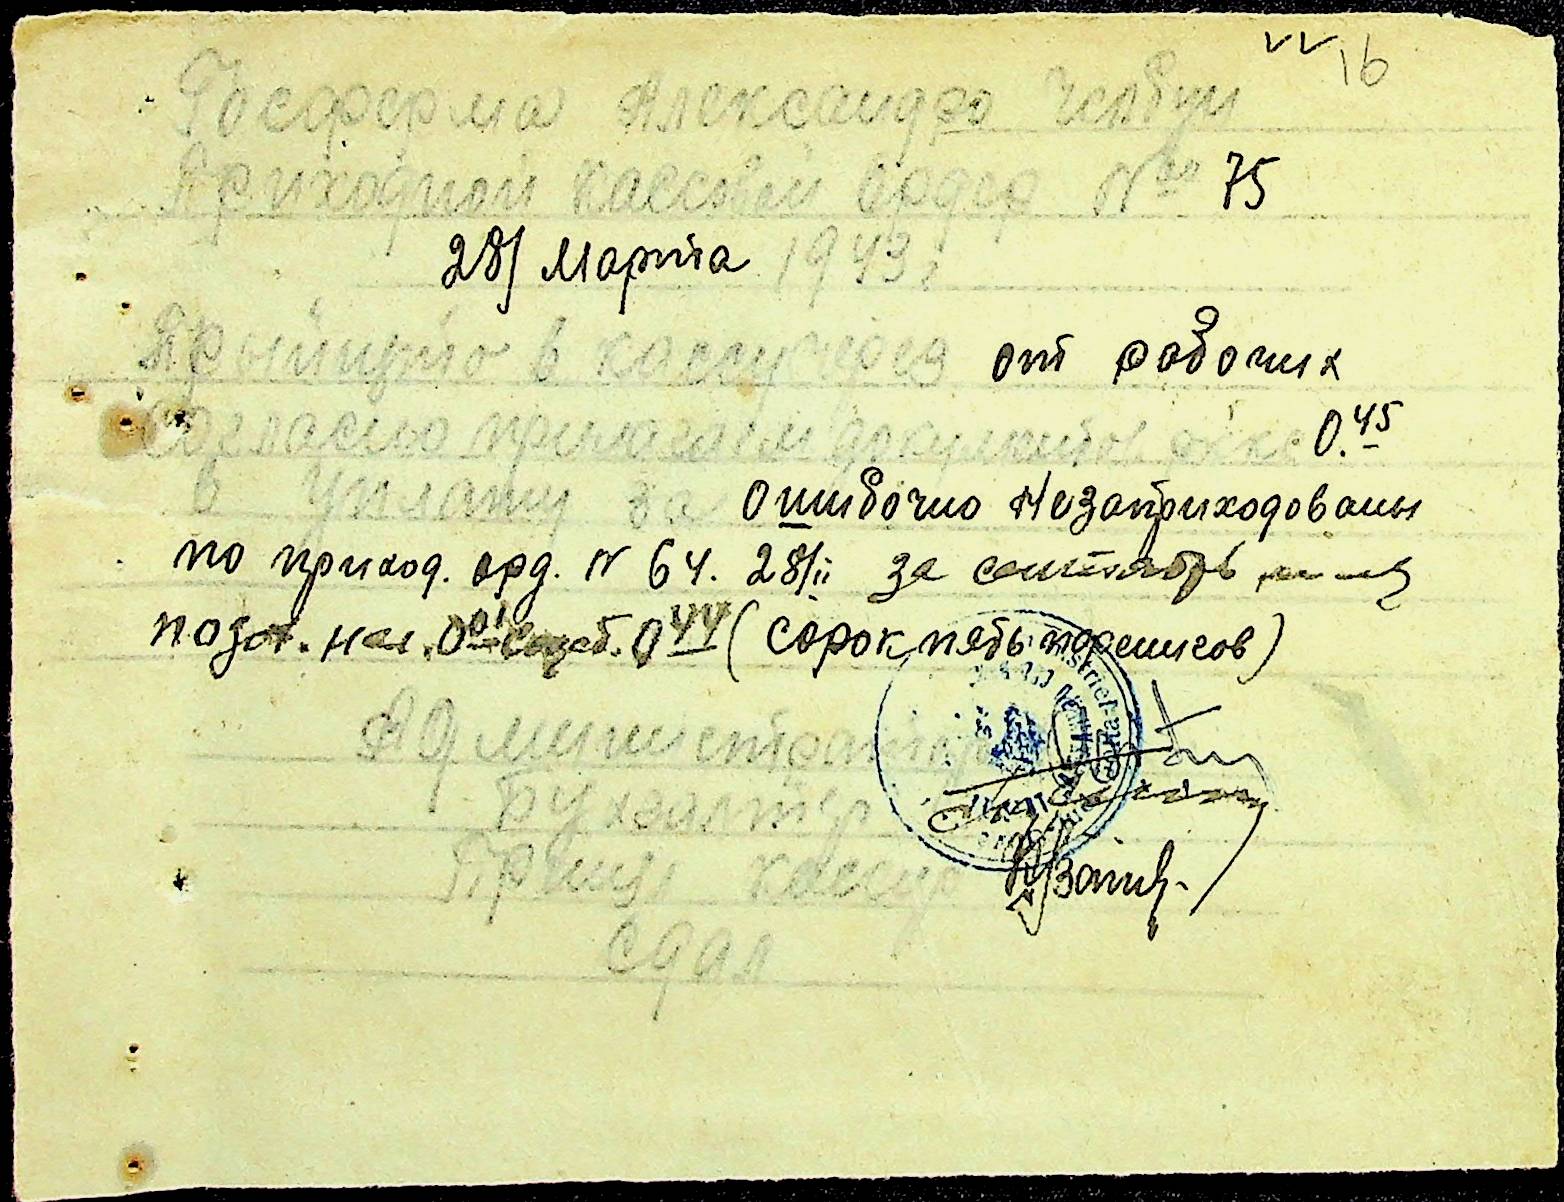 VV 16
Госферма Александро
Приходной кассовой ордер № 75
28/ Марта 1943 г
Прынято в кассу через от рабочих
Согласно прилагаем документов 0.45
в уплату за ошибочно незаприходованы
по приход. орд. N 64. 28/II за сентябрь
позот. нал. 0.01 0.44 (сорок пять пфенигов)
Администратор
Бухгалтер
Принял кассир
Сдал